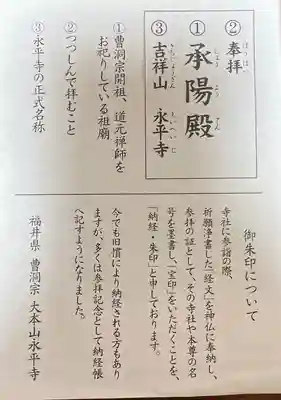 ②奉拝
①承陽殿
③吉祥山 永平寺
①曹洞宗開祖、道元禅師を
お祀りしている祖廟
②つつしんで拝むこと
③永平寺の正式名称
御朱印について
寺社に参詣の際、
祈願浄書した「経文」を神仏に奉納し、
参拝の証として、その寺社や本尊の名
号を墨書し、「宝印」をいただくことを、
「納経・朱印」と申しております。
今でも旧慣により納経される方もあり
ますが、多くは参拝記念として納経帳
へ記すようになりました。
福井県 曹洞宗 大本山永平寺